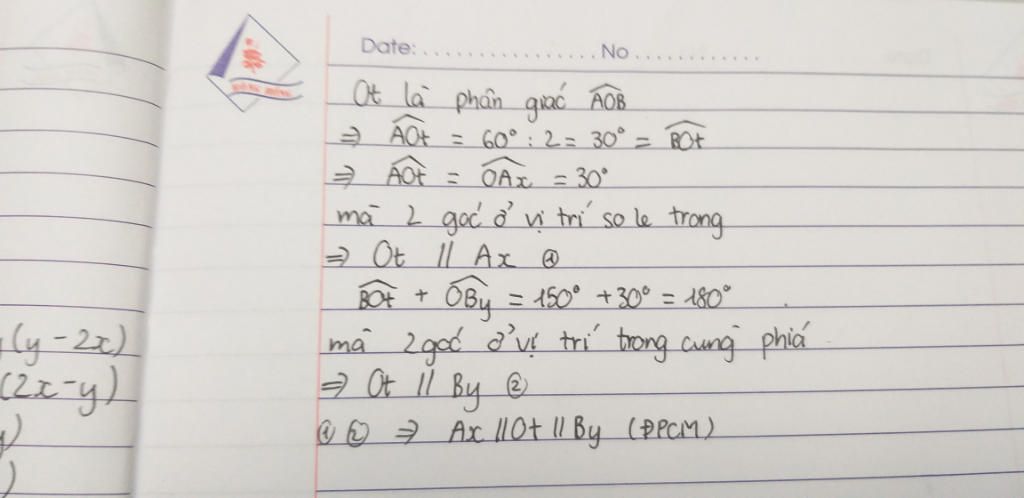 Date:................No............
Ot là phân giác AOB
⇒ AOt = 60° : 2 = 30° = BOt
⇒ AOt = OAx = 30°
mà 2 góc ở vị trí so le trong
⇒ Ot // Ax ①
BOt + OBy = 150° + 30° = 180°
mà 2 góc ở vị trí trong cùng phía
⇒ Ot // By ②
① ② ⇒ Ax // Ot // By (ĐPCM)
(y - 2x)
(2x - y)
)
)